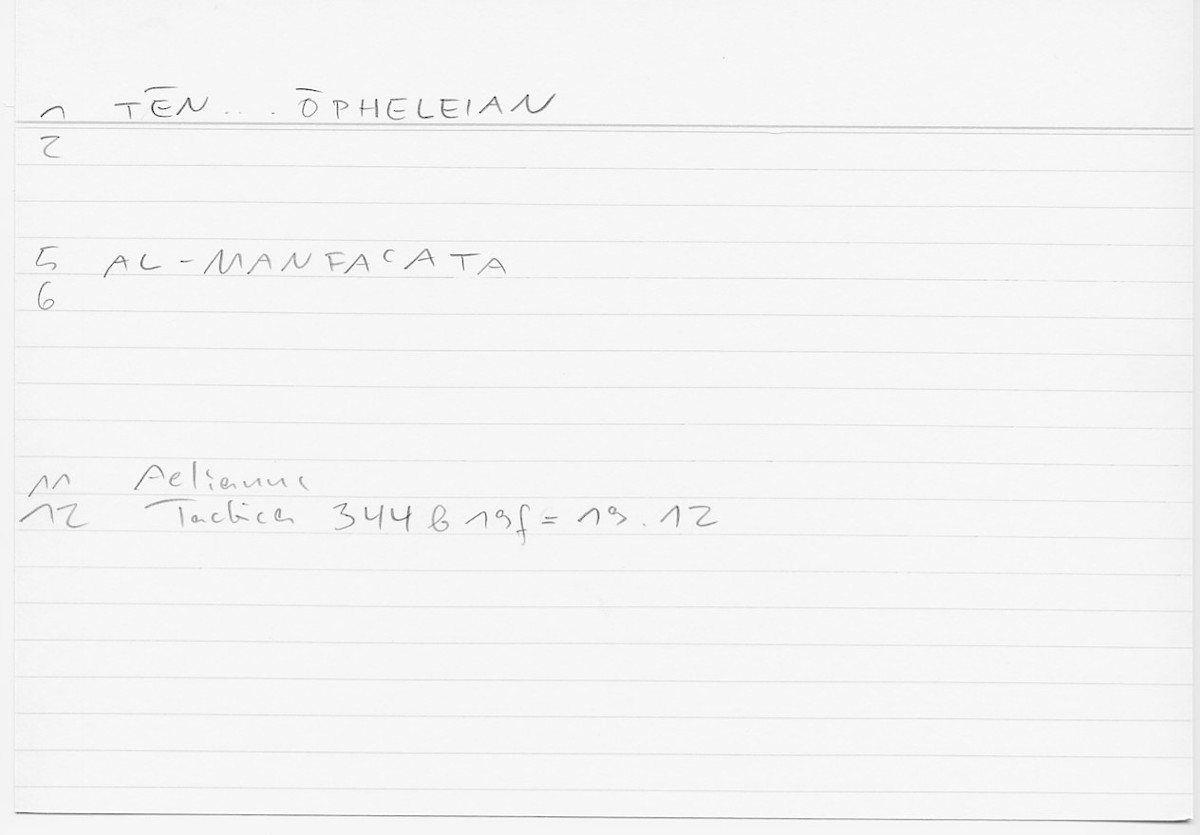 1 TĒN.... ŌPHELEIAN
2
5 AL-MANFAʿATA
6
11 Aelianus
12 Tactica 344 b 19f = 19.12